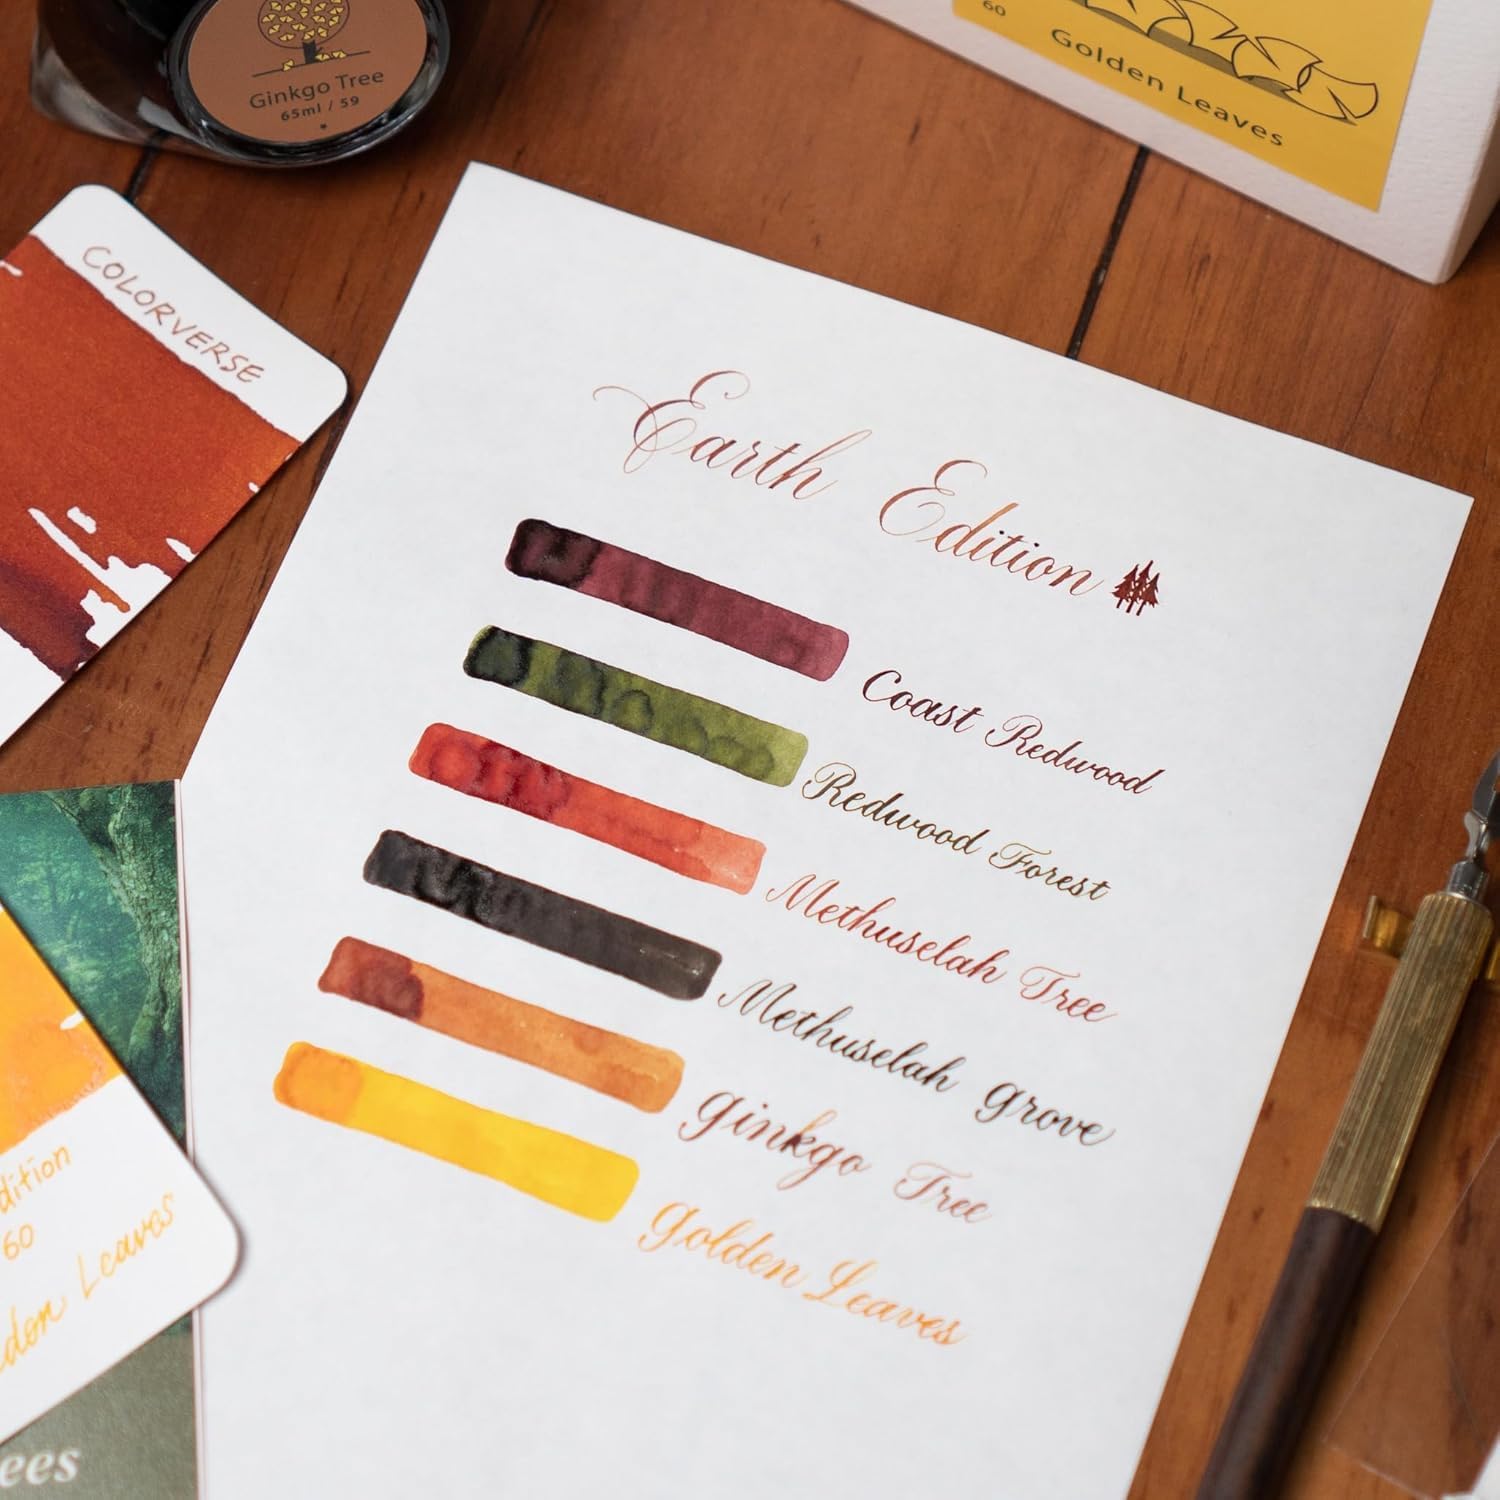 Ginkgo Tree
65ml / 59
60
Golden Leaves
COLORVERSE
Earth Edition
Coast Redwood
Redwood Forest
Methuselah Tree
Methuselah Grove
Ginkgo Tree
Golden Leaves
60
Leaves